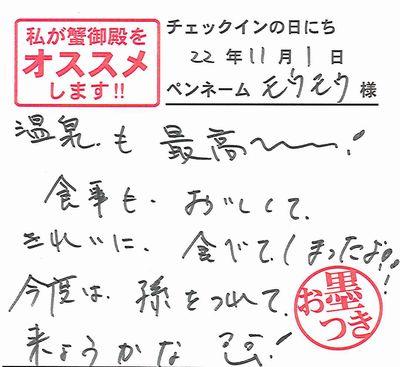 私が蟹御殿を
オススメ
します!!
チェックインの日にち
22年11月1日
ペンネーム モウモウ 様
温泉も最高〜〜!
食事も、おいしくて、
きれいに、食べてしまったよ!!
今度は、孫をつれて、
来ようかな!
お墨つき